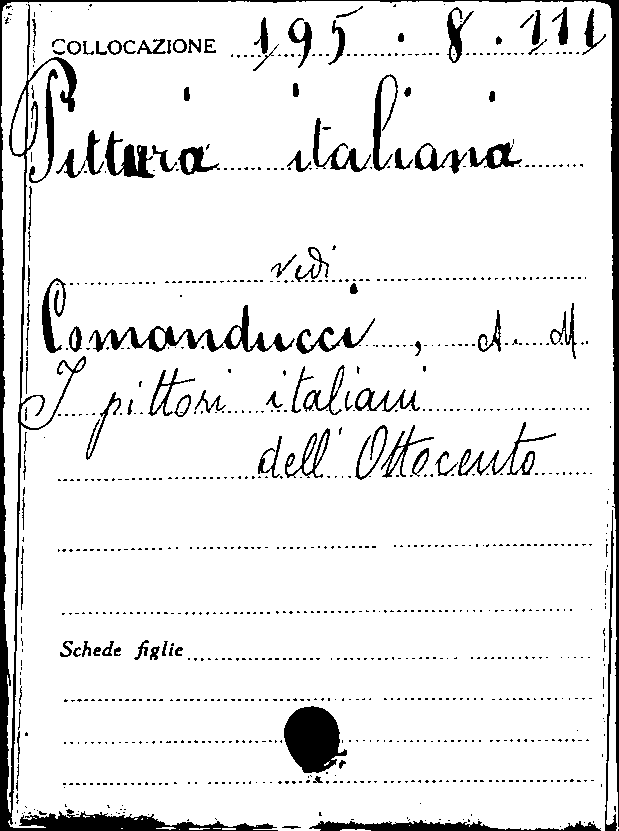 COLLOCAZIONE 195.8.111
Pittura italiana
vedi
Comanducci, A. M.
I pittori italiani
dell'Ottocento
Schede figlie